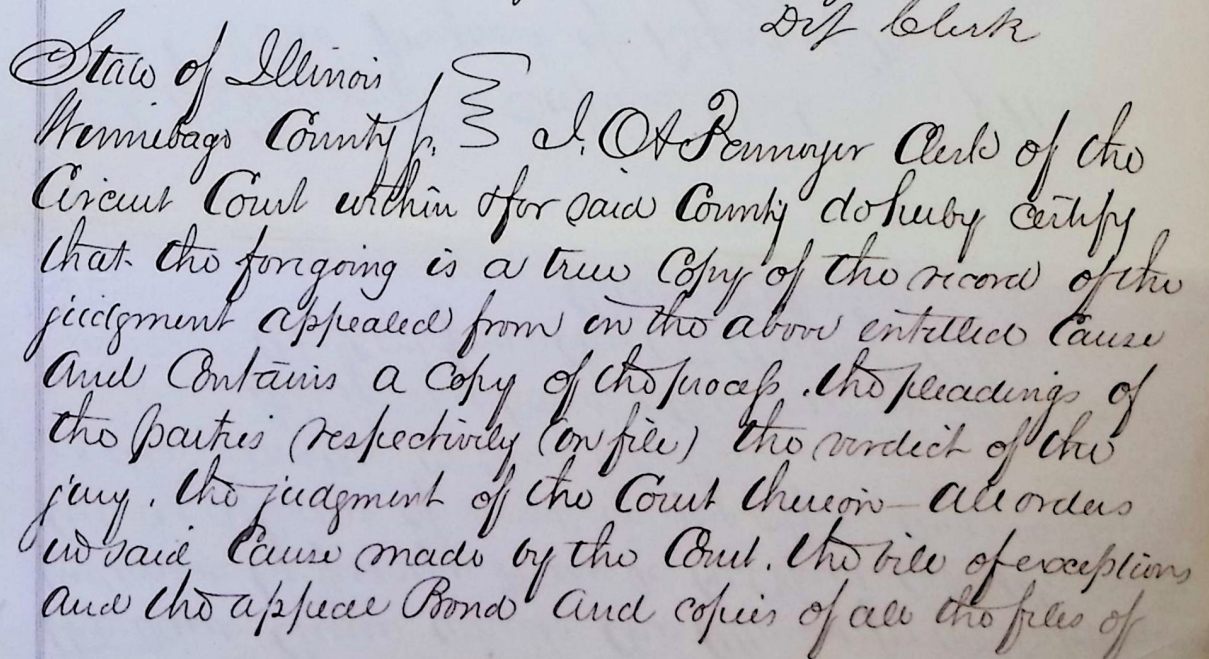 Dept Clerk
State of Illinois
Winnebago County ss. I. O A Pennoyer Clerk of the
Circuit Court within & for said County do hereby certify
that the foregoing is a true Copy of the record of the
judgment appealed from in the above entitled Cause
And Contains a Copy of the process. the pleadings of
the parties respectively (on file) the verdict of the
jury. the judgment of the Court thereon — All orders
in said Cause made by the Court. the bill of exceptions
And the appeal Bond And copies of all the files of